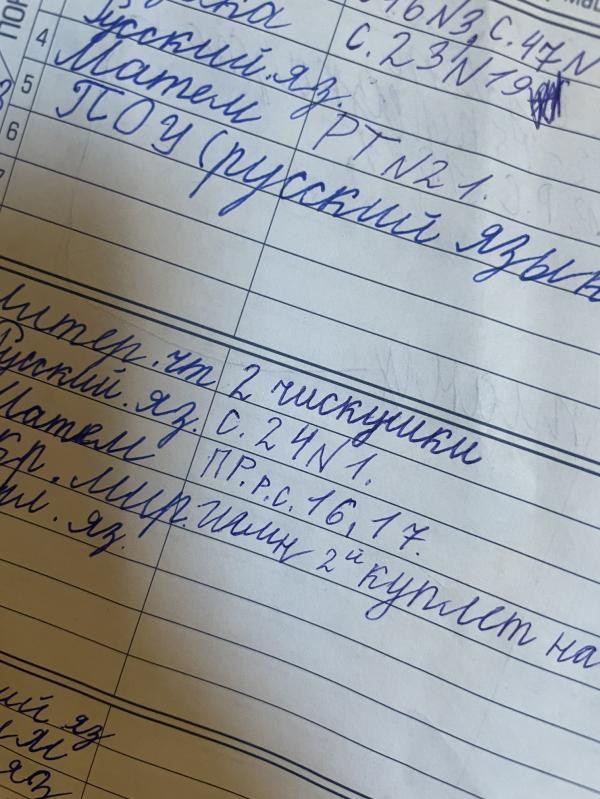 6N3, с.47N
4 Русский.яз. с.23N19
5 Матем РТ N21.
6 ПОУ (русский язык
Литер.чт 2 чискушки
Русский.яз. с.24N1.
Матем ПР.р.с.16,17.
кр.мир. Гимн 2й куплет на
гл. яз.
ий яз
ем
яз